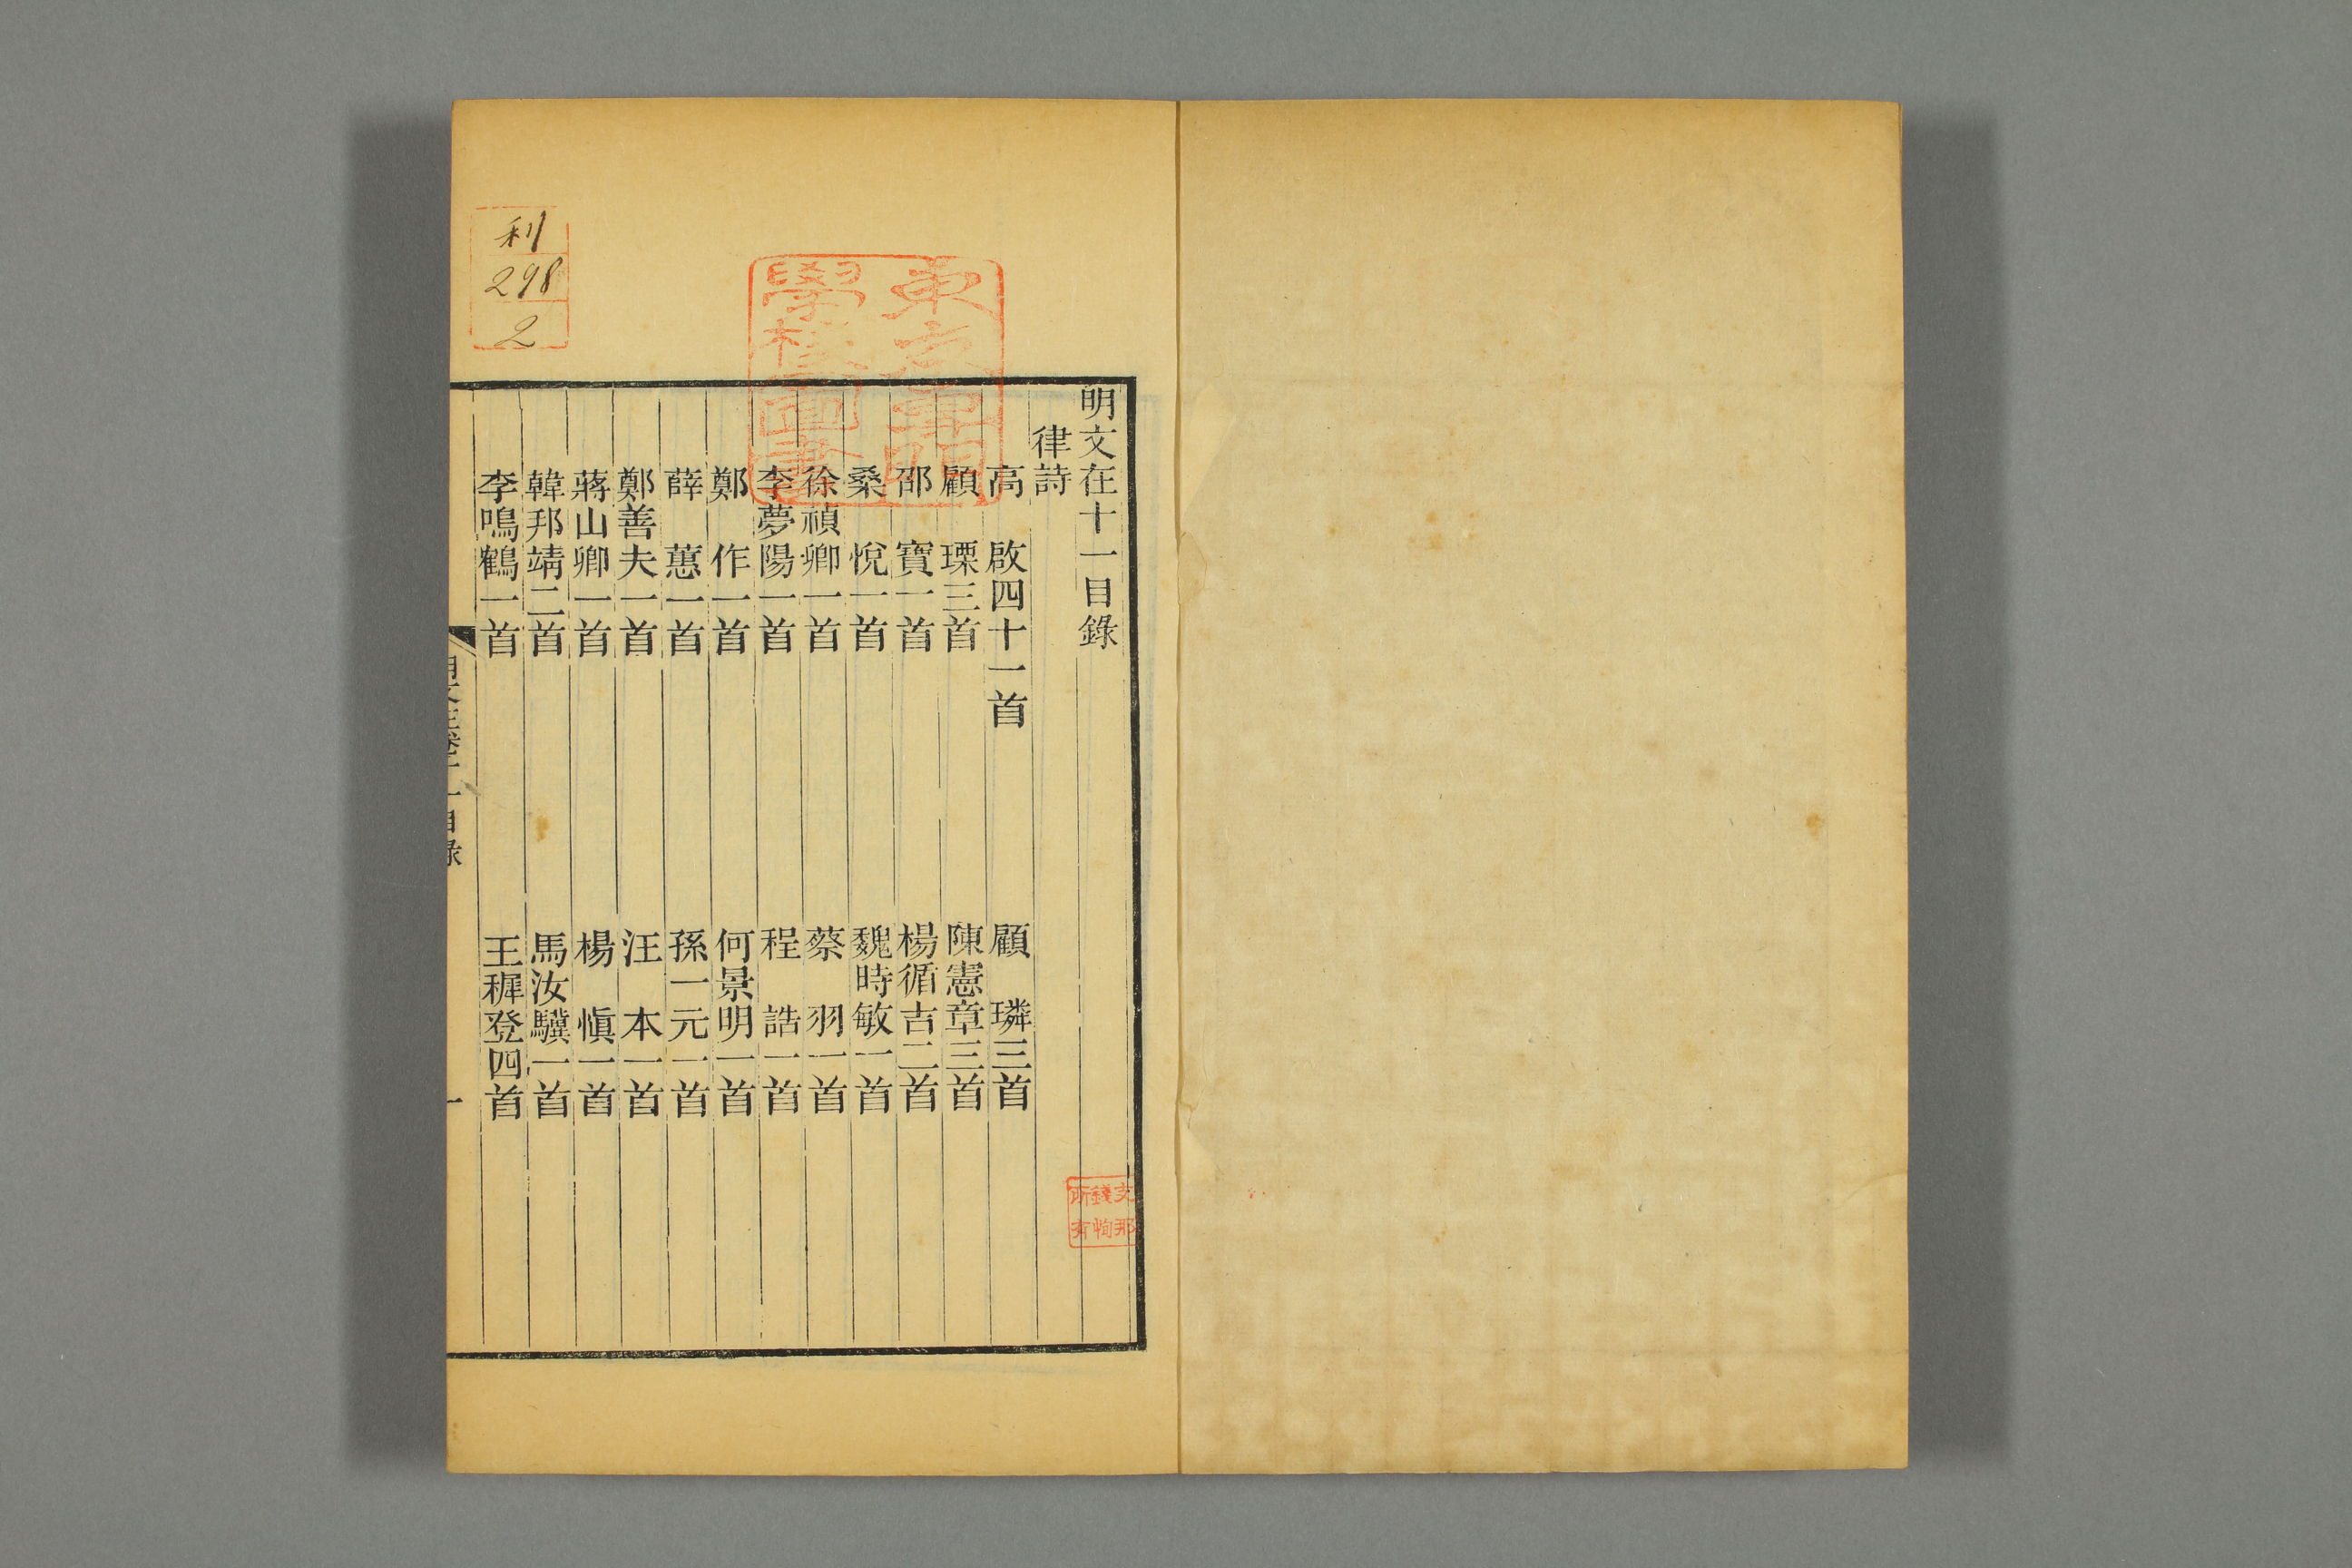 明文在十一目錄
律詩
高　啟四十一首　顧　璘三首
顧　瑮三首　陳憲章三首
邵　寶一首　楊循吉二首
桑　悅一首　魏時敏一首
徐禎卿一首　蔡　羽一首
李夢陽一首　程　誥一首
鄭　作一首　何景明一首
薛　蕙一首　孫一元一首
鄭善夫一首　汪　本一首
蔣山卿一首　楊　愼一首
韓邦靖二首　馬汝驥一首
李鳴鶴一首　王穉登四首
明文在卷十一目錄
一
利
298
2
學校圖書
所有